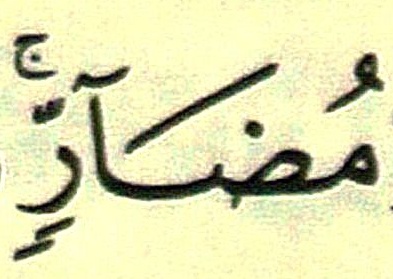 مُضَآرٍّۚ